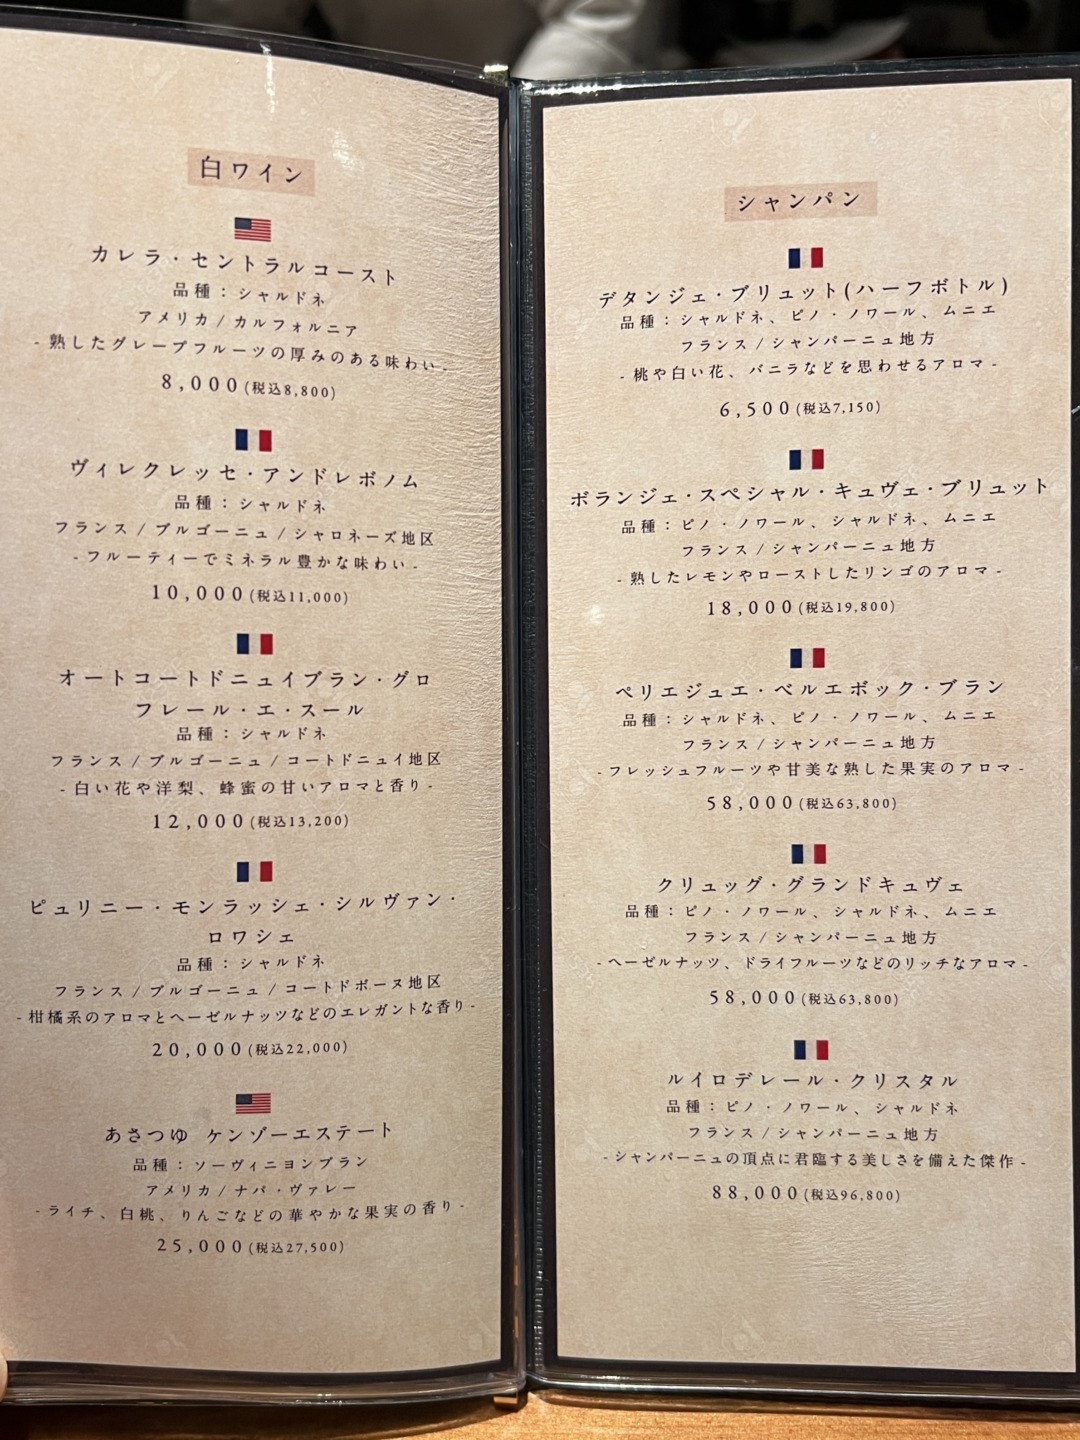 白ワイン
カレラ・セントラルコースト
品種：シャルドネ
アメリカ/カルフォルニア
-熟したグレープフルーツの厚みのある味わい-
8,000(税込8,800)
ヴィレクレッセ・アンドレボノム
品種：シャルドネ
フランス/ブルゴーニュ/シャロネーズ地区
-フルーティーでミネラル豊かな味わい-
10,000(税込11,000)
オートコートドニュイブラン・グロ
フレール・エ・スール
品種：シャルドネ
フランス/ブルゴーニュ/コートドニュイ地区
-白い花や洋梨、蜂蜜の甘いアロマと香り-
12,000(税込13,200)
ピュリニー・モンラッシェ・シルヴァン・
ロワシェ
品種：シャルドネ
フランス/ブルゴーニュ/コートドボーヌ地区
-柑橘系のアロマとヘーゼルナッツなどのエレガントな香り-
20,000(税込22,000)
あさつゆ ケンゾーエステート
品種：ソーヴィニヨンブラン
アメリカ/ナパ・ヴァレー
-ライチ、白桃、りんごなどの華やかな果実の香り-
25,000(税込27,500)
シャンパン
デタンジェ・ブリュット(ハーフボトル)
品種：シャルドネ、ピノ・ノワール、ムニエ
フランス/シャンパーニュ地方
-桃や白い花、バニラなどを思わせるアロマ-
6,500(税込7,150)
ボランジェ・スペシャル・キュヴェ・ブリュット
品種：ピノ・ノワール、シャルドネ、ムニエ
フランス/シャンパーニュ地方
-熟したレモンやローストしたリンゴのアロマ-
18,000(税込19,800)
ペリエジュエ・ベルエポック・ブラン
品種：シャルドネ、ピノ・ノワール、ムニエ
フランス/シャンパーニュ地方
-フレッシュフルーツや甘美な熟した果実のアロマ-
58,000(税込63,800)
クリュッグ・グランドキュヴェ
品種：ピノ・ノワール、シャルドネ、ムニエ
フランス/シャンパーニュ地方
-ヘーゼルナッツ、ドライフルーツなどのリッチなアロマ-
58,000(税込63,800)
ルイロデレール・クリスタル
品種：ピノ・ノワール、シャルドネ
フランス/シャンパーニュ地方
-シャンパーニュの頂点に君臨する美しさを備えた傑作-
88,000(税込96,800)